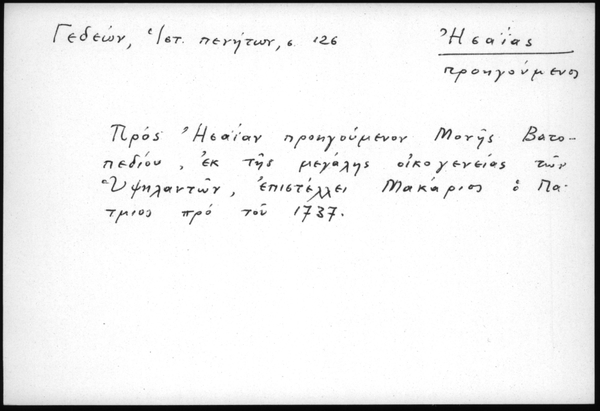 Γεδεών, Ἱστ. πενήτων, σ. 126
Ἠσαΐας
προηγούμενος
Πρός Ἠσαΐαν προηγούμενον Μονῆς Βατο-
πεδίου, ἐκ τῆς μεγάλης οἰκογενείας τῶν
Ὑψηλαντῶν, ἐπιστέλλει Μακάριος ὁ Πά-
τμιος πρό τοῦ 1737.